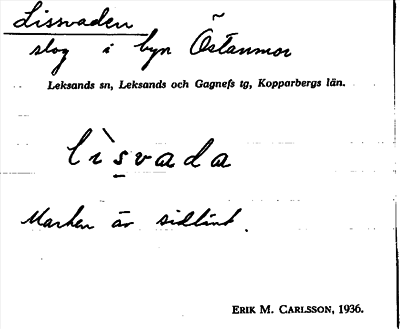 Lissvaden
slog i byn Östanmor
Leksands sn, Leksands och Gagnefs tg, Kopparbergs län.
lìs̱vada
Marken är sidlänt.
ERIK M. CARLSSON, 1936.